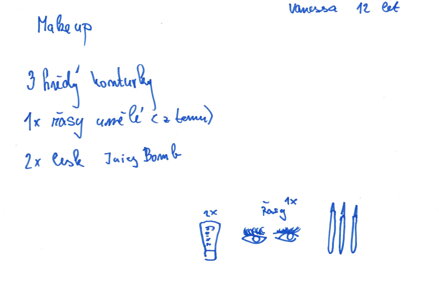 Vanessa 12 let
Makeup
3 hnědý konturky
1x řasy umělé (z temu)
2x lesk Juicy Bomb
2x
řasy 1x